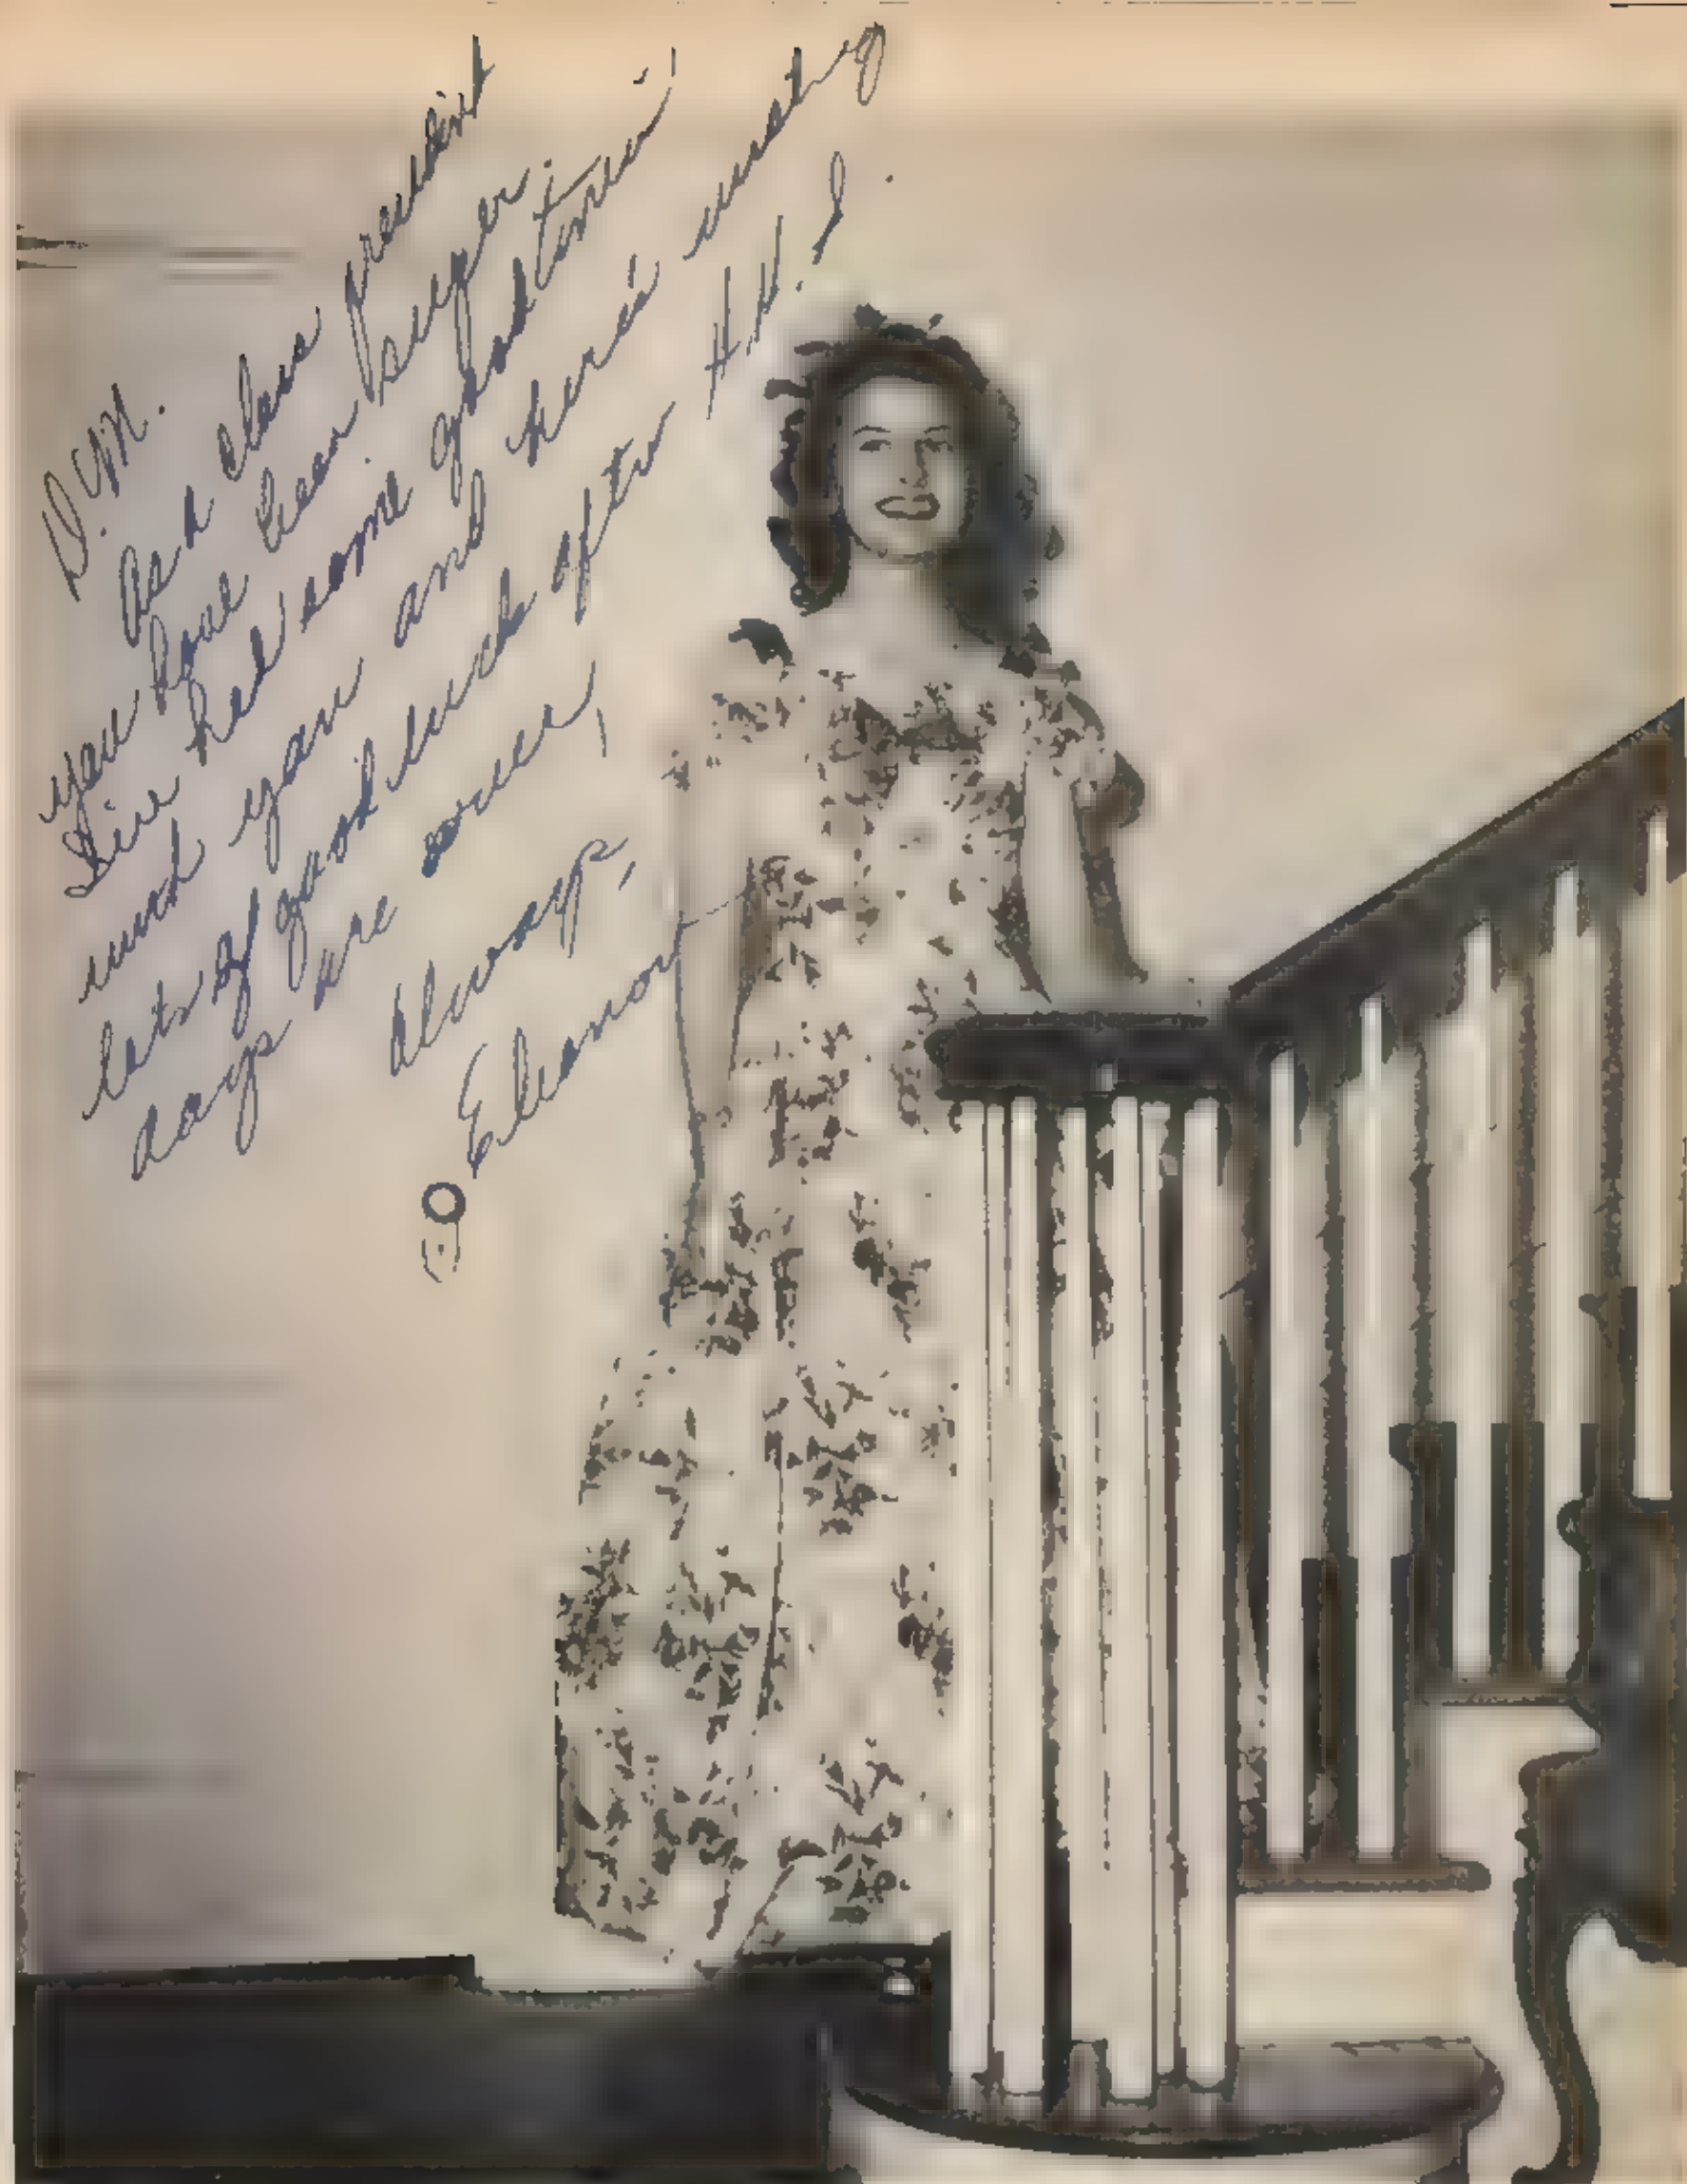 D.M.
As a class president
you have been super.
I've had some good times
with you and here's wishing
lots of good luck after H.S.
days are over,
Always,
Eleanor